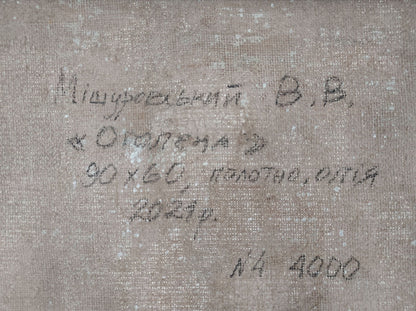 Мішуровський В.В.
«Оголена»
90х60, полотно, олія
2021р.
№4 4000